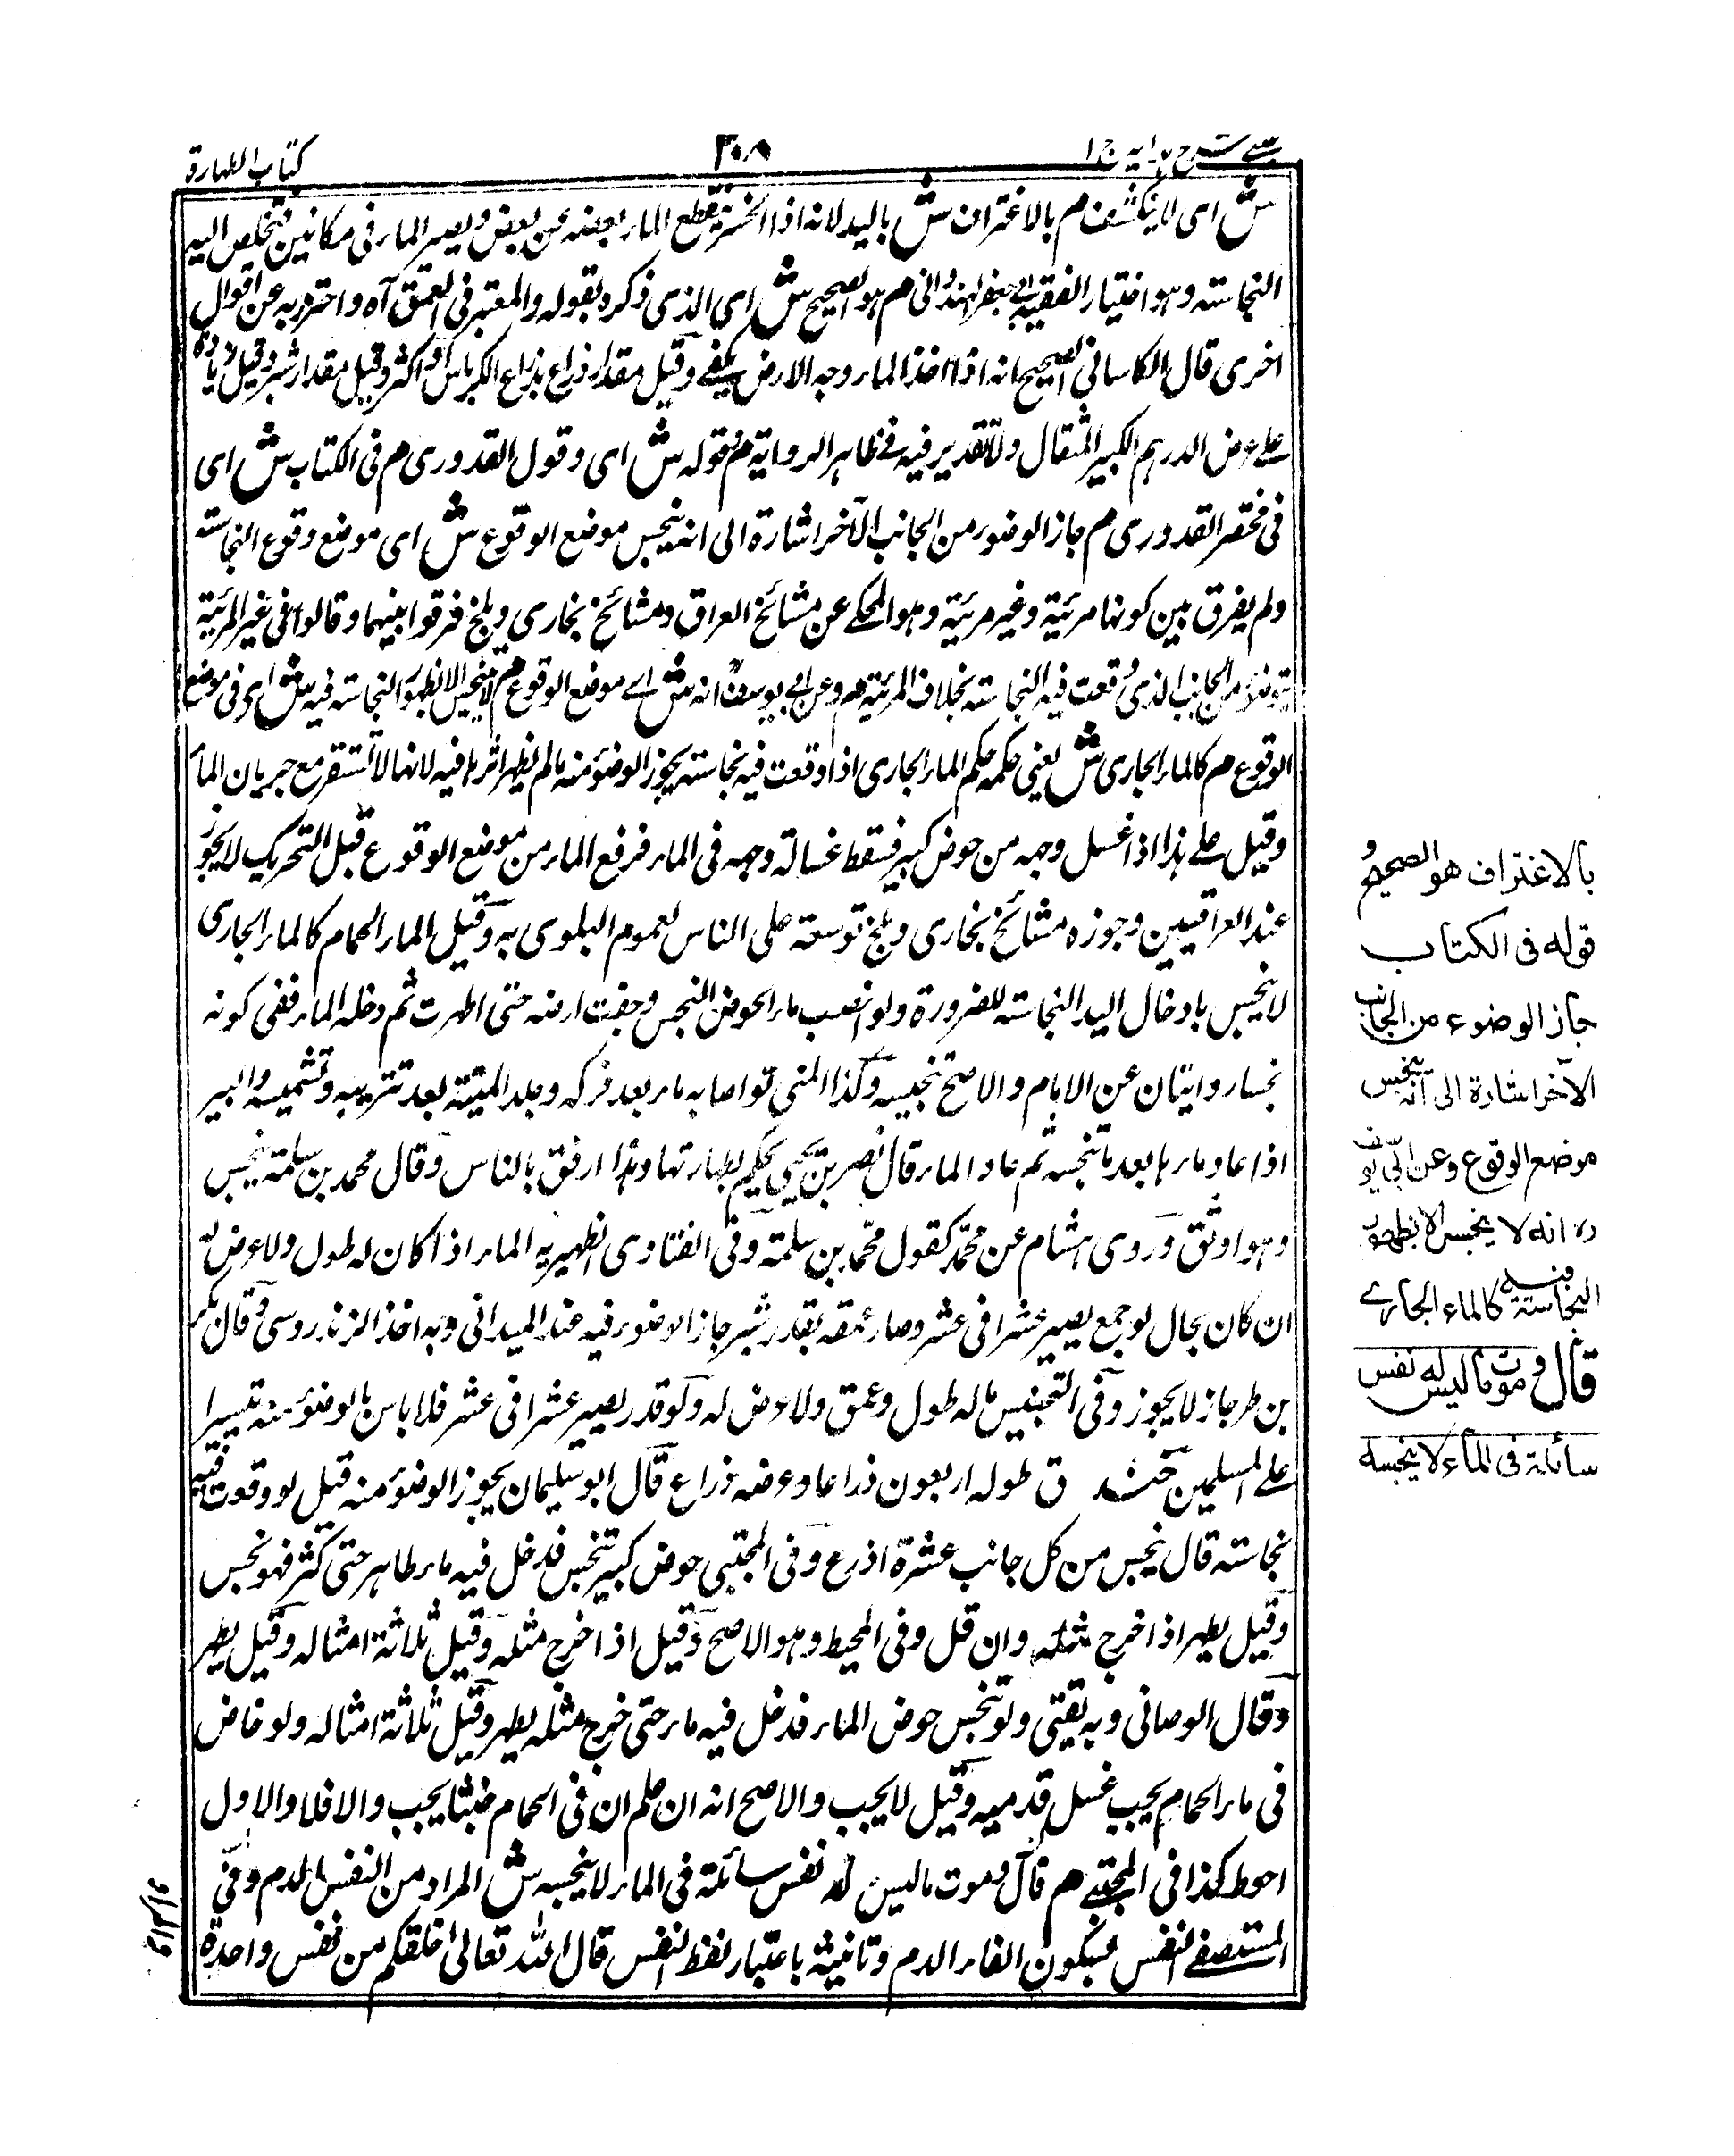 عينى شرح هدايه ج ا
٢٠٨
كتاب الطهارة
ش اى لا ينكشف م بالاغتراف ش باليد لانه اذا انحسر ينقطع الماء بعضه عن بعض ويصير الماء فى مكانين فتخلص اليه
النجاسته وهو اختيار الفقيه ابى جعفر الهندوانى م هو الصحيح ش اى الذى ذكره بقوله والمعتبر فى العمق آه واحترز به عن اقوال
اخرى قال الكاسانى الصحيح انه اذا اخذ الماء وجه الارض يكفى وقيل مقدار ذراع بذراع الكرباس او اكثر وقيل مقدار شبر وقيل زيادة
على عرض الدرهم الكبير المثقال ولا تقدير فيه فى ظاهر الرواية م وقوله ش اى وقول القدورى م فى الكتاب ش اى
فى مختصر القدورى م جاز الوضوء من الجانب الآخر اشارة الى انه ينجس موضع الوقوع ش اى موضع وقوع النجاسته
ولم يفرق بين كونها مرئية وغير مرئية وهو المحكى عن مشائخ العراق ومشائخ بخارى وبلخ فرقوا بينهما وقالوا فى غير المرئية
يتوضؤ من الجانب الذى وقعت فيه النجاسته بخلاف المرئية م وعن ابى يوسف انه ش اى موضع الوقوع م لا ينجس الا بظهور النجاسته فيه ش اى فى موضع
الوقوع م كالماء الجارى ش يعنى حكمه حكم الماء الجارى اذا وقعت فيه نجاسته يجوز الوضوء منه مالم يظهر اثرها فيه لانها لا تستقر مع جريان الماء
وقيل على هذا اذا غسل وجهه من حوض كبير فسقط غسالة وجهه فى الماء فرفع الماء من موضع الوقوع قبل التحريك لا يجوز
عند العراقيين وجوزه مشائخ بخارى وبلخ توسعة على الناس لعموم البلوى به وقيل الماء الحمام كالماء الجارى
لا ينجس بادخال اليد النجاسته للضرورة ولو نصب ماء الحوض النجس وجفت ارضه حتى اطهرت ثم دخله الماء ففى كونه
نجسا روايتان عن الامام والاصح نجسه وكذا المنى تو اصابه ماء بعد فركه وجلد الميتة بعد تتريبه وتشميسه والبير
اذا عاد ماءها بعد ما تنجسه ثم عاد الماء قال نصر بن يحيى يحكم بطهارتها وهذا ارفق بالناس وقال محمد بن سلمة ينجس
وهو اوثق وروى هشام عن محمد كقول محمد بن سلمته وفى الفتاوى الظهيريه الماء اذا كان له طول ولا عرض له
ان كان بحال لو جمع يصير عشرا فى عشر وصار عمقه بقدر شبر جاز الوضوء فيه عند الميدانى وبه اخذ الزندروسى وقال بكر
بن طرجاز لا يجوز وفى التجنيس ماله طول وعمق ولا عرض له ولو قدر يصير عشرا فى عشر فلا باس بالوضوء منه تيسيرا
على المسلمين طوله اربعون ذراعا وعرضه ذراع قال ابو سليمان يجوز الوضوء منه قيل لو وقعت فيه
نجاسته قال ينجس من كل جانب عشرة اذرع وفى المجتبى حوض كبير تنجس فدخل فيه ماء طاهر حتى كثر فهو نجس
وقيل يطهر اذا خرج مثله وان قل وفى المحيط وهو الاصح وقيل اذا خرج مثله وقيل ثلاثة امثاله وقيل يطهر
وقال الوصانى وبه يفتى ولو تنجس حوض الماء فدخل فيه ماء حتى خرج مثله يطهر وقيل ثلاثة امثاله ولو خاض
فى ماء الحمام يجب غسل قدميه وقيل لا يجب والاصح انه ان علم ان فى الحمام خبثا يجب والا فلا والاول
احوط كذا فى المجتبى م قال وموت ماليس له نفس سائلة فى الماء لا ينجسه ش المراد من النفس الدم وفى
المستصفى النفس بسكون الفاء الدم وتانيثه باعتبار لفظ النفس قال الله تعالى اخلقكم من نفس واحدة
والمراد
بالاغتراف هو الصحيح و
قوله فى الكتاب
جاز الوضوء من الجانب
الآخر اشارة الى انه ينجس
موضع الوقوع وعن ابى يوسف
ره انه لا ينجس الا بظهور
النجاسته فيه كالماء الجارے
قال وموت ماليس له نفس
سائلة فى الماء لا ينجسه